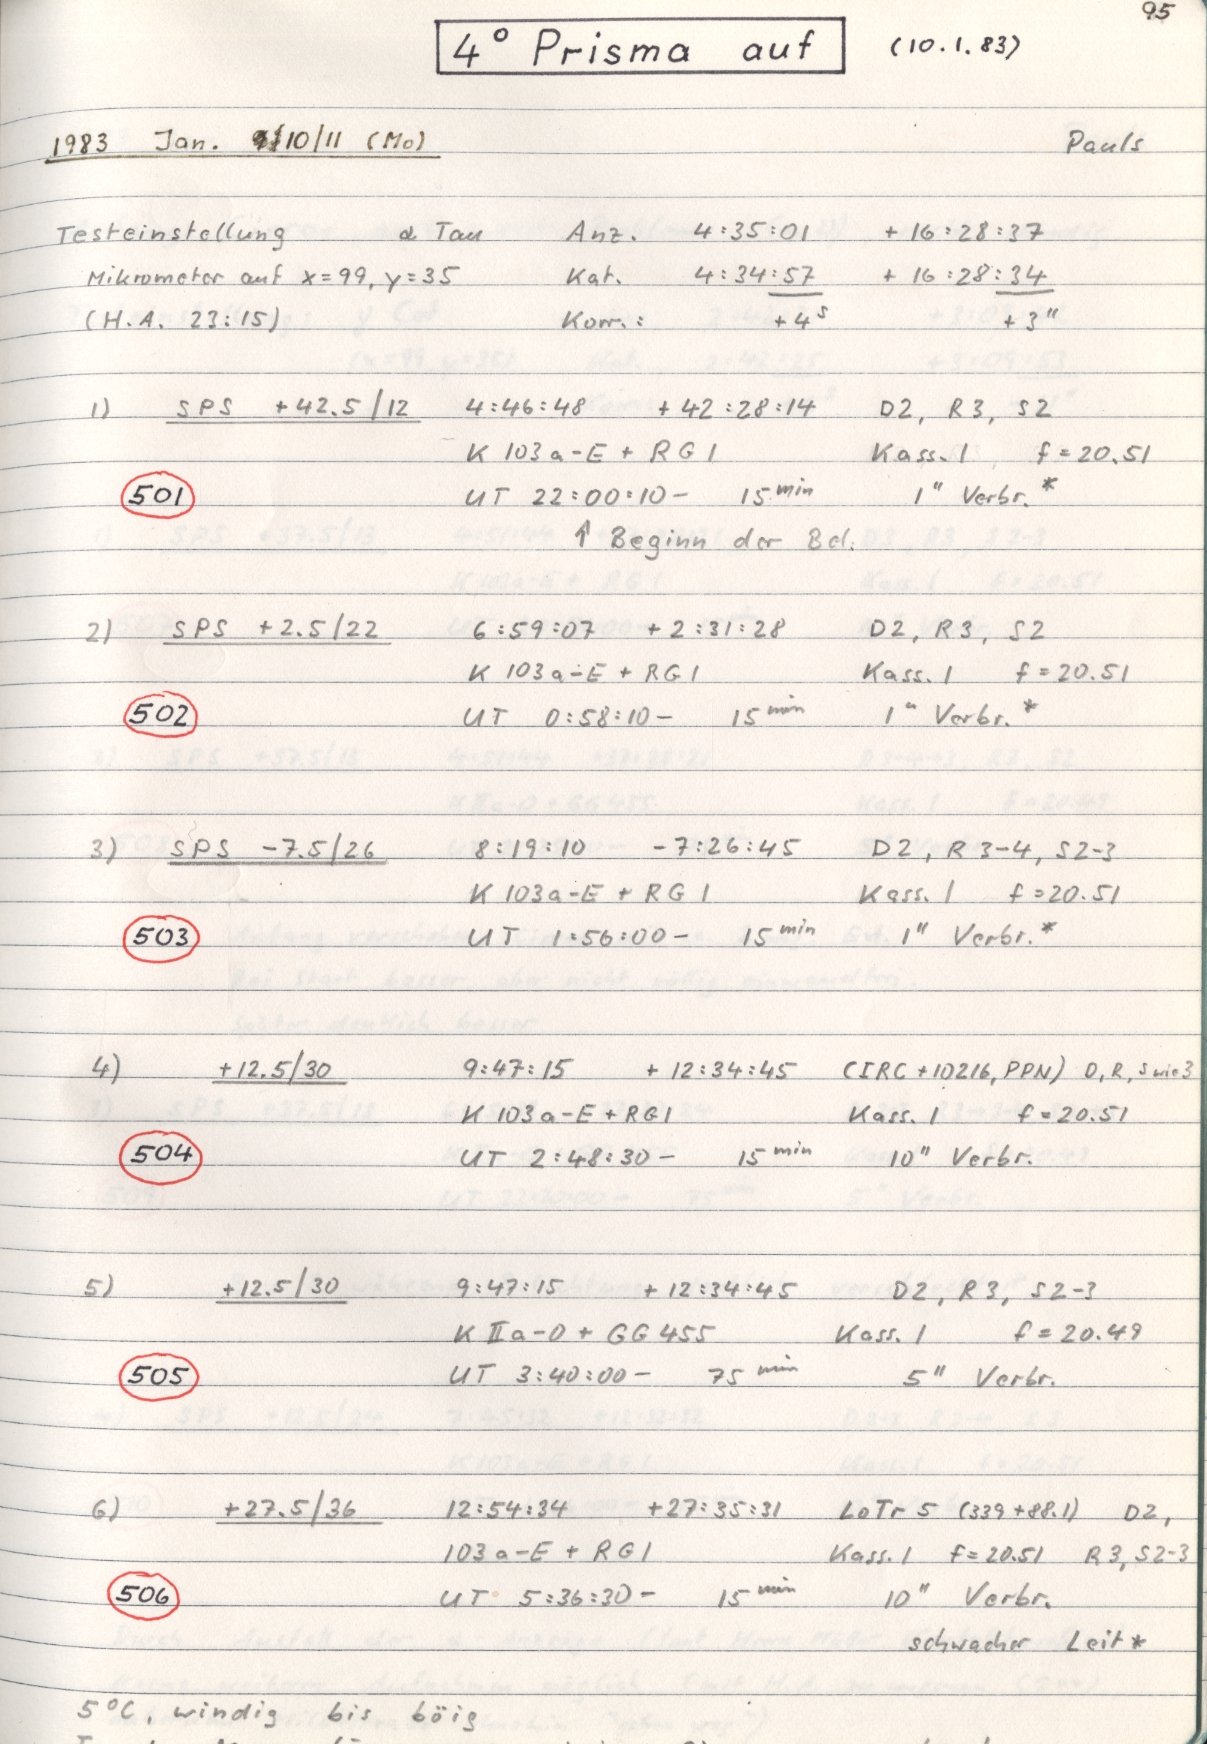 95
4° Prisma auf (10.1.83)
1983 Jan. 10/11 (Mo) Pauls
Testeinstellung α Tau Anz. 4:35:01 +16:28:37
Mikrometer auf x=99, y=35 Kat. 4:34:57 +16:28:34
(H.A. 23:15) Korr.: +4s +3"
1) SPS +42.5/12 4:46:48 +42:28:14 D2, R3, S2
K 103a-E + RG1 Kass. 1 f=20.51
501 UT 22:00:10- 15min 1" Verbr.*
↑ Beginn der Bel.
2) SPS +2.5/22 6:59:07 +2:31:28 D2, R3, S2
K 103a-E + RG1 Kass. 1 f=20.51
502 UT 0:58:10- 15min 1" Verbr.*
3) SPS -7.5/26 8:19:10 -7:26:45 D2, R3-4, S2-3
K 103a-E + RG1 Kass. 1 f=20.51
503 UT 1:56:00- 15min 1" Verbr.*
4) +12.5/30 9:47:15 +12:34:45 (IRC+10216, PPN) D, R, S wie 3
K 103a-E+RG1 Kass. 1 f=20.51
504 UT 2:48:30- 15min 10" Verbr.
5) +12.5/30 9:47:15 +12:34:45 D2, R3, S2-3
K IIa-O + GG455 Kass. 1 f=20.49
505 UT 3:40:00- 75min 5" Verbr.
6) +27.5/36 12:54:34 +27:35:31 LoTr 5 (339+88.1) D2,
103a-E + RG1 Kass. 1 f=20.51 R3, S2-3
506 UT 5:36:30- 15min 10" Verbr.
schwacher Leit*
5°C, windig bis böig